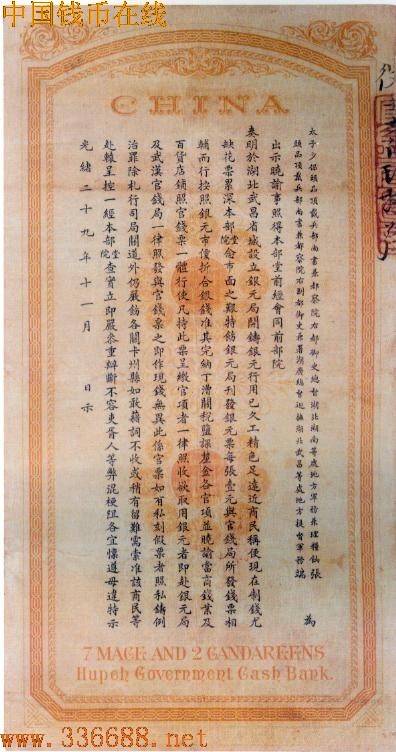 中国钱币在线
CHINA
太子少保頭品頂戴兵部尚書兼都察院右都御史總督湖北湖南等處地方軍務兼理糧餉張
頭品頂戴兵部尚書兼都察院右副都御史兼署湖廣總督巡撫湖北武昌等處地方提督軍務端
為
出示曉諭事照得本部堂前經會同前部院
奏明於湖北武昌省城設立銀元局開鑄銀元行用已久工精色足遠近商民稱便現在制錢尤
缺花票累深本部堂院念市面之艱特飭銀元局刊發銀元票每張壹元與官錢局所發錢票相
輔而行按照銀元市價折合銀錢准其完納丁漕關稅鹽課釐金各官項並曉諭當商錢業及
百貨店鋪照官錢票一體行使凡持此票呈繳官項者一律照收欲取用銀元者即赴銀元局
及武漢官錢局一律照發與官錢票之即作現錢無異此係官票如有私刻假票者照私鑄例
治罪除札行司局關道外仍嚴飭各關卡州縣如敢藉詞不收或稍有留難需索准該商民等
赴轅呈控一經本部堂院查實立即嚴參重辦斷不容吏胥人等弊混梗阻各宜懍遵毋違特示
光緒二十九年十一月 日示
7 MACE AND 2 CANDAREENS
Hupeh Government Cash Bank.
www.336688.net